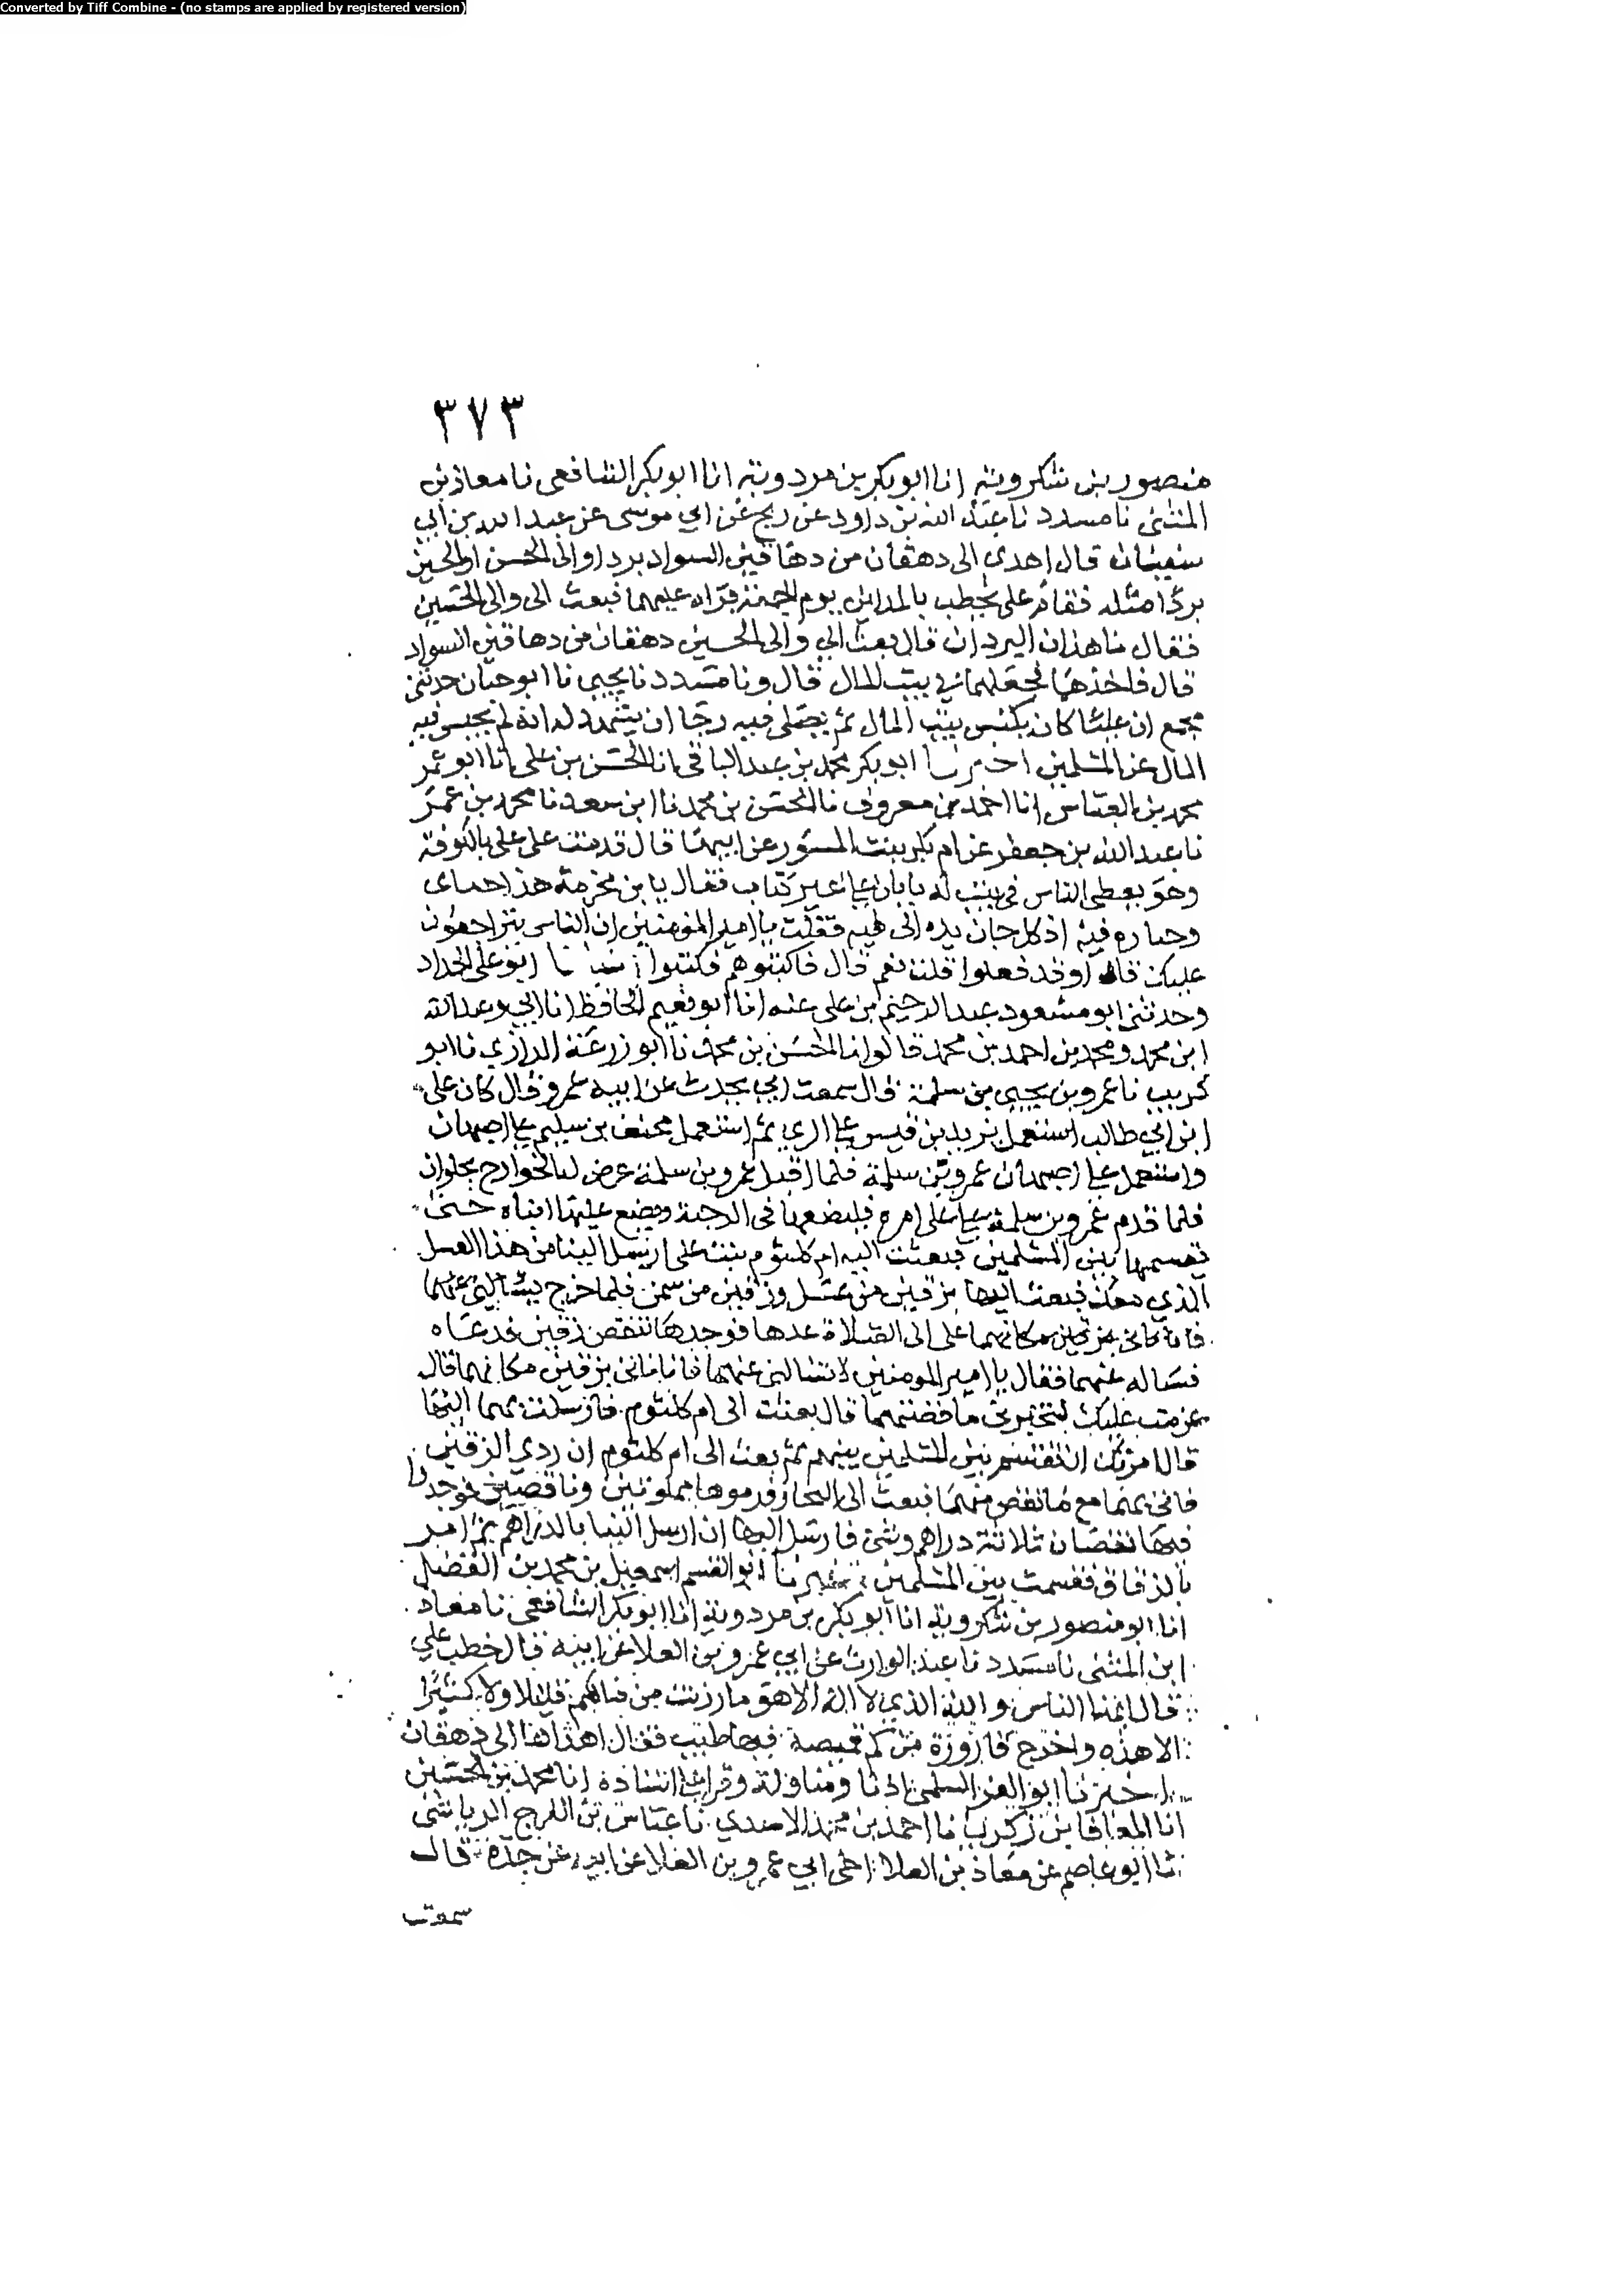 Converted by Tiff Combine - (no stamps are applied by registered version)
٣٧٣
منصور بن شكرويه انا ابو بكر بن مردويه انا ابو بكر الشافعى نا معاذ بن
المثنى نا مسدد نا عبد الله بن داود عن ربيع عن ابي موسى عن عبد الله بن ابي
سفيان قال اهدى الى دهقان من دهاقين السواد بردا والى الحسن او الحسين
بردا مثله فقام على يخطب بالمداين يوم الجمعة فرآه عليهما فبعث الى والى الحسين
فقال ما هذان البردان قال بعث الي والى الحسين دهقان من دهاقين السواد
قال فاخذهما فجعلهما في بيت المال قال ونا مسدد نا يحيى نا ابو حيان حدثنى
مجمع ان عليا كان يكنس بيت المال ثم يصلى فيه رجا ان يشهد له انه لم يحبس فيه
المال عن المسلمين اخبرنا ابو بكر محمد بن عبد الباقى انا الحسن بن على انا ابو عمر
محمد بن العباس انا احمد بن معروف نا الحسين بن محمد نا ابن سعد نا محمد بن عمر
نا عبد الله بن جعفر عن ام بكر بنت المسور عن ابيها قال قدمت على على بالكوفة
وهو يعطى الناس فى بيت له بابان على غير كتاب فقال يا بن مخرمة هذا جناى
وخياره فيه اذ كل جان يده الى فيه فقلت يا امير المؤمنين ان الناس يتراجعون
عليك قال اوقد فعلوا قلت نعم قال فاكتبوهم فكتبوا انبانا ابو على الحداد
وحدثنى ابو مسعود عبد الرحيم بن على عنه انا ابو نعيم الحافظ انا ابي وعبد الله
ابن محمد ومحمد بن احمد بن محمد قالوا نا الحسن بن محمد نا ابو زرعة الرازي نا ابو
كريب نا عمرو بن يحيى بن سلمة قال سمعت ابي يحدث عن ابيه عمرو قال كان على
ابن ابي طالب استعمل يزيد بن قيس على الري ثم استعمل مخنف بن سليم على اصبهان
واستعمل على اصبهان عمرو بن سلمة فلما اقبل عمرو بن سلمة عرض له الخوارج بحلوان
فلما قدم عمرو بن سلمة على على امره فليضعها فى الرحبة ويضع عليها ابناه حتى
تقسمها بين المسلمين فبعثت اليه ام كلثوم بنت على ارسل الينا من هذا العسل
الذي معك فبعث اليها بزقين من عسل وزقين من سمن فلما خرج
على الى الصلاة عدها فوجدها تنقص زقين فدعاه
فساله عنهما فقال يا امير المومنين لا تسالنى عنهما فانا ناتى بزقين مكانهما قال
عزمت عليك لتخبرنى ما قصتهما قال بعثت الى ام كلثوم فارسلت بهما اليها
قال امرتك ان تقسم بين المسلمين بينهم ثم بعث الى ام كلثوم ان ردي الزقين
فاتى بهما مع ما نقص منهما فبعث الى التجار قوموها مملوتين وناقصين فوجدوا
فيها نقصان ثلاثة دراهم وشى فارسل اليها ان ارسل الينا بالدراهم ثم امر
بالزقاق فقسمت بين المسلمين اخبرنا ابو القسم اسمعيل بن محمد بن الفضل
انا ابو منصور بن شكرويه انا ابو بكر بن مردويه انا ابو بكر الشافعى نا معاذ
ابن المثنى نا مسدد نا عبد الوارث عن ابي عمرو بن العلا عن ابيه قال خطب علي
فقال ايها الناس والله الذي لا اله الا هو ما رزئت من مالكم قليلا ولا كثيرا
الا هذه واخرج قارورة من كم قميصه فيها طيب فقال اهداها الى دهقان
اخبرنا ابو العز السلمى اذنا ومناولة وقرا على اسناده انا محمد بن الحسين
انا المعافا بن زكريا نا احمد بن محمد الاسدي نا عباس بن الفرج الرياشى
نا ابو عاصم عن معاذ بن العلا اخى ابي عمرو بن العلا عن ابيه عن جده قال
سمعت